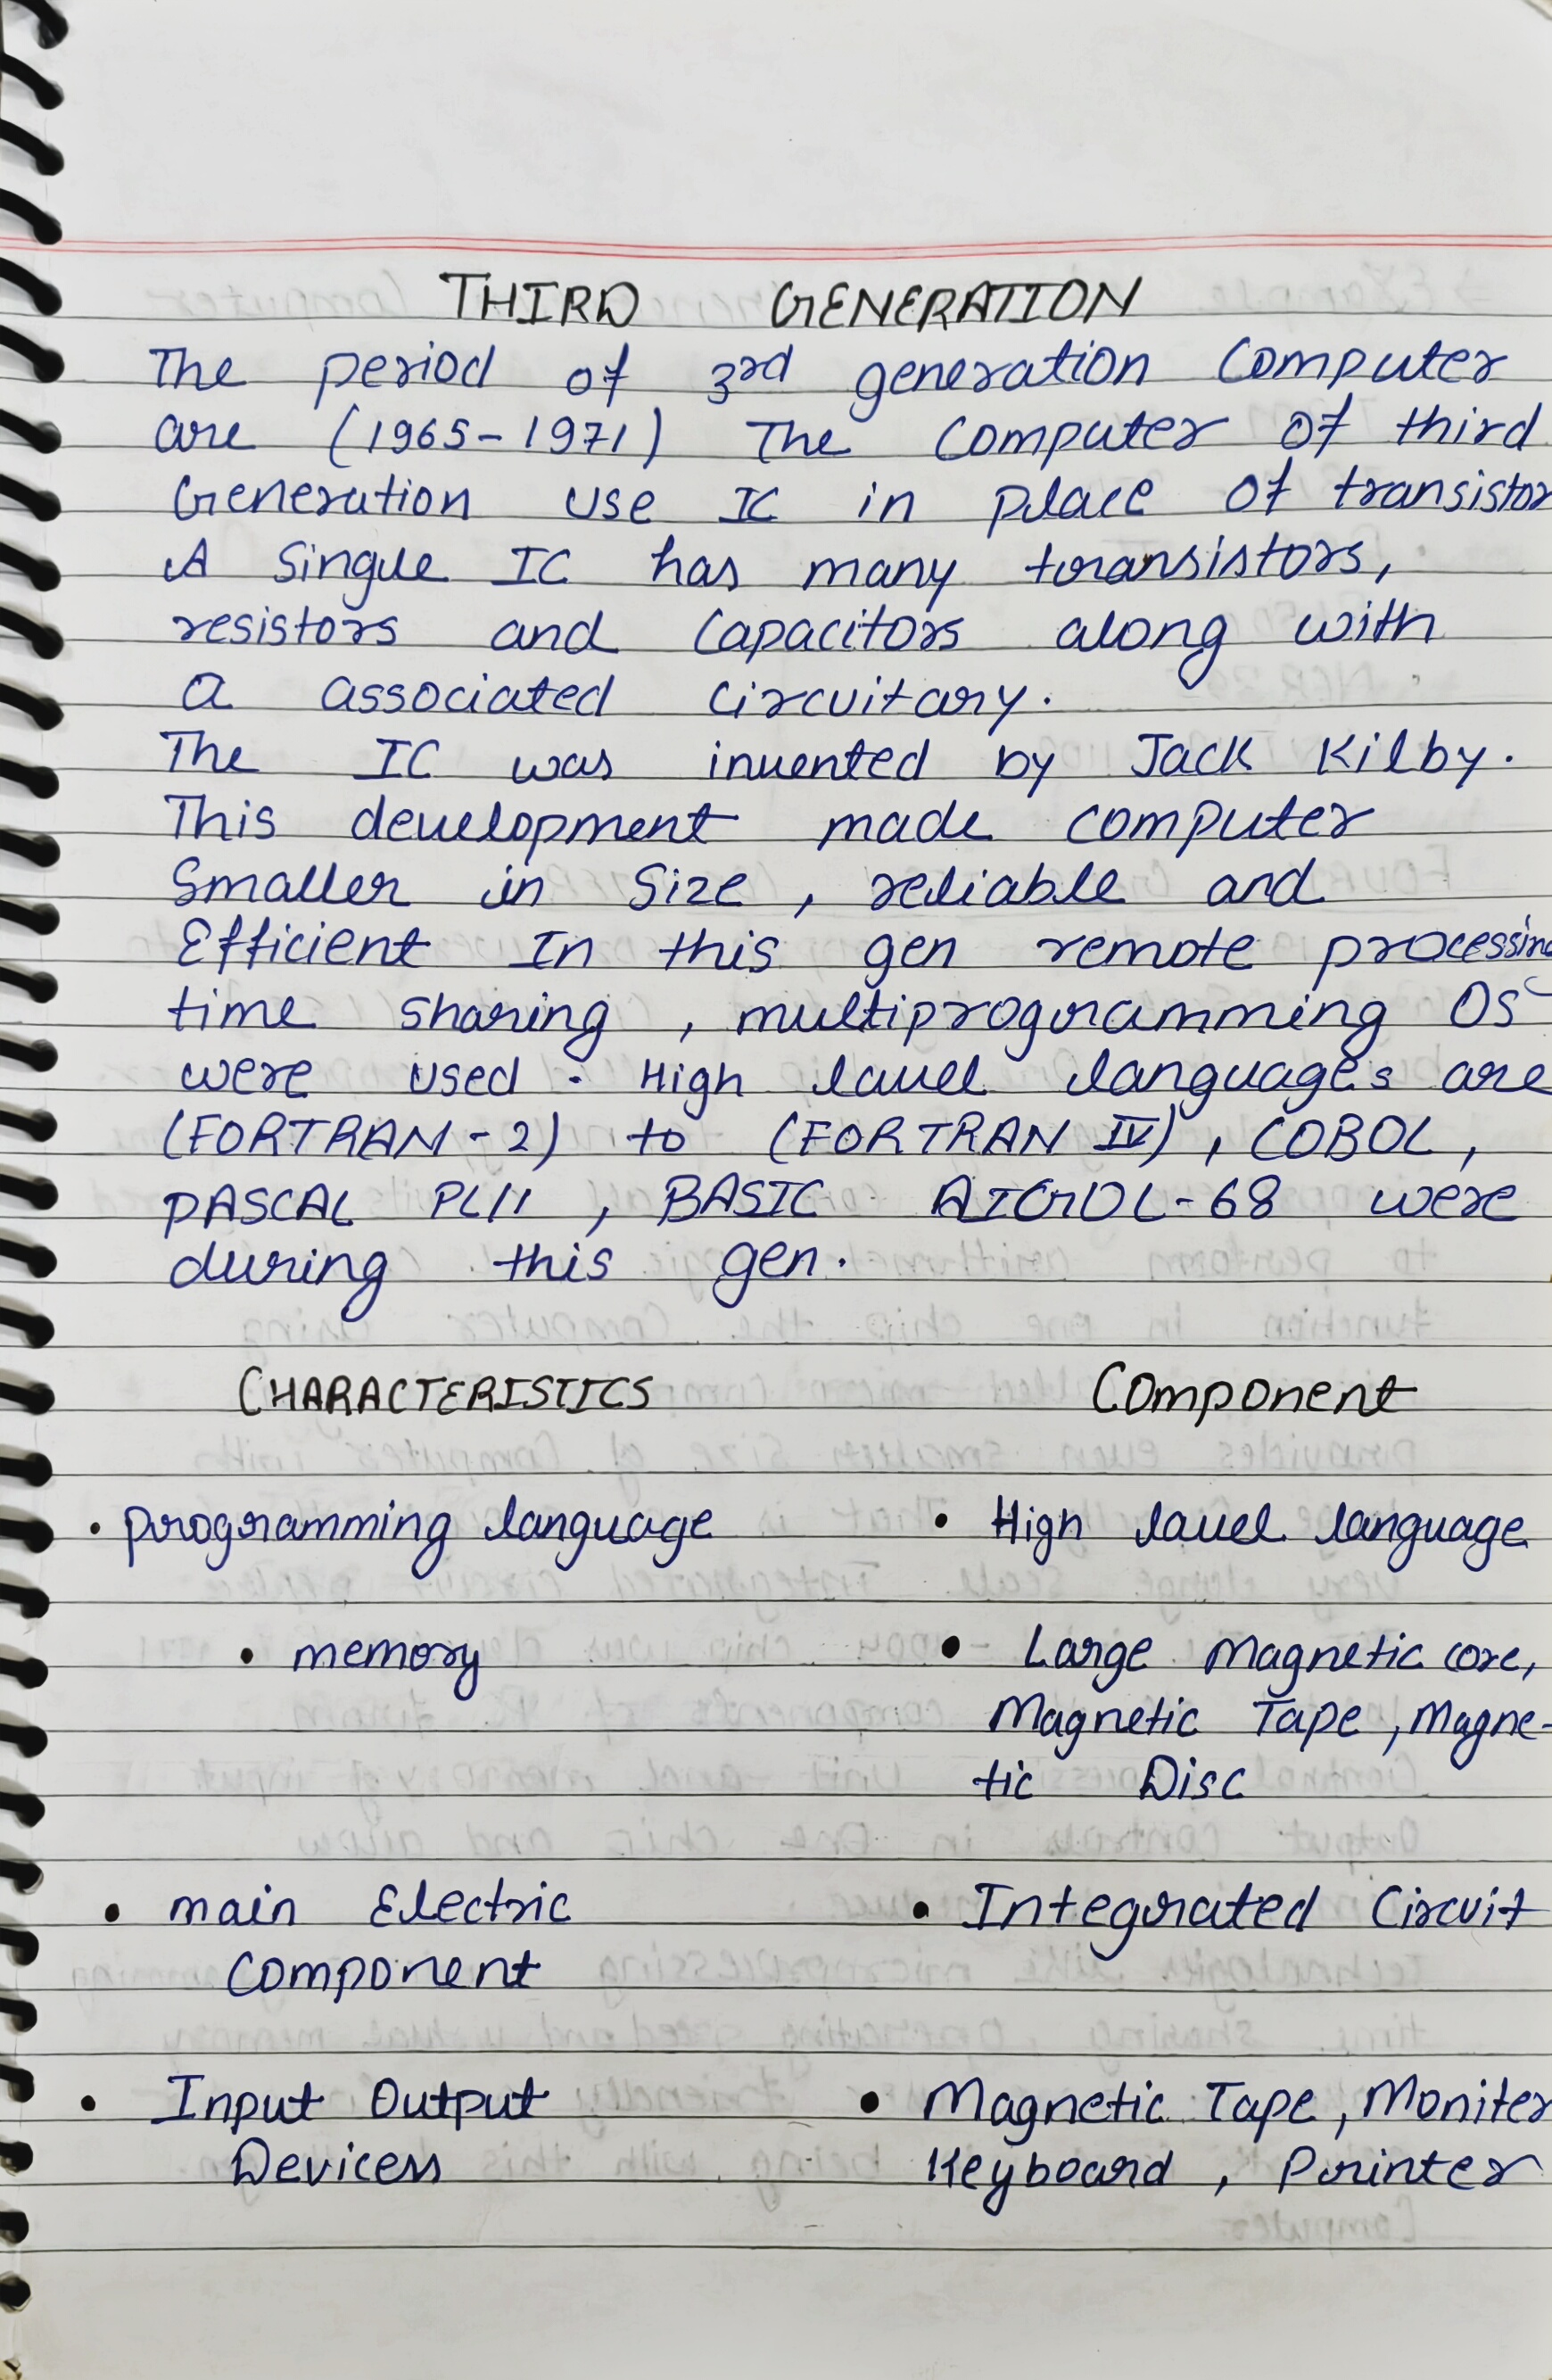 THIRD GENERATION
The period of 3rd generation Computer
are (1965-1971) The Computer of third
Generation use IC in place of transistor
A Single IC has many transistors,
resistors and Capacitors along with
a associated Circuitary.
The IC was invented by Jack Kilby.
This development made computer
Smaller in Size, reliable and
Efficient In this gen remote processing
time sharing, multiprogramming OS
were used. High lavel languages are
(FORTRAN-2) to (FORTRAN IV), COBOL,
PASCAL PL/1, BASIC ALGOL-68 were
during this gen.
CHARACTERISTICS Component
• programming language • High lavel language
• memory • Large magnetic core,
Magnetic Tape, Magne-
tic Disc
• main Electric • Integrated Circuit
Component
• Input Output • Magnetic Tape, Moniter
Devicess Keyboard, Printer